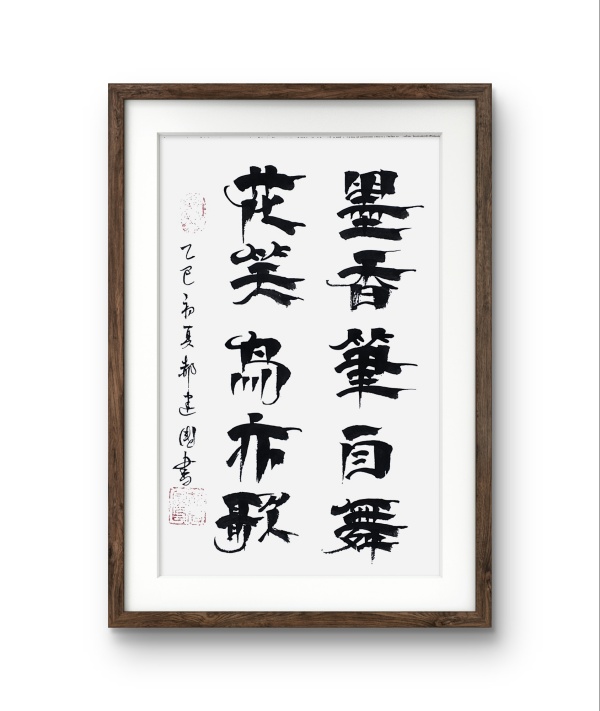 墨香筆自舞
花笑鸟亦歌
乙巳初夏郝建國書